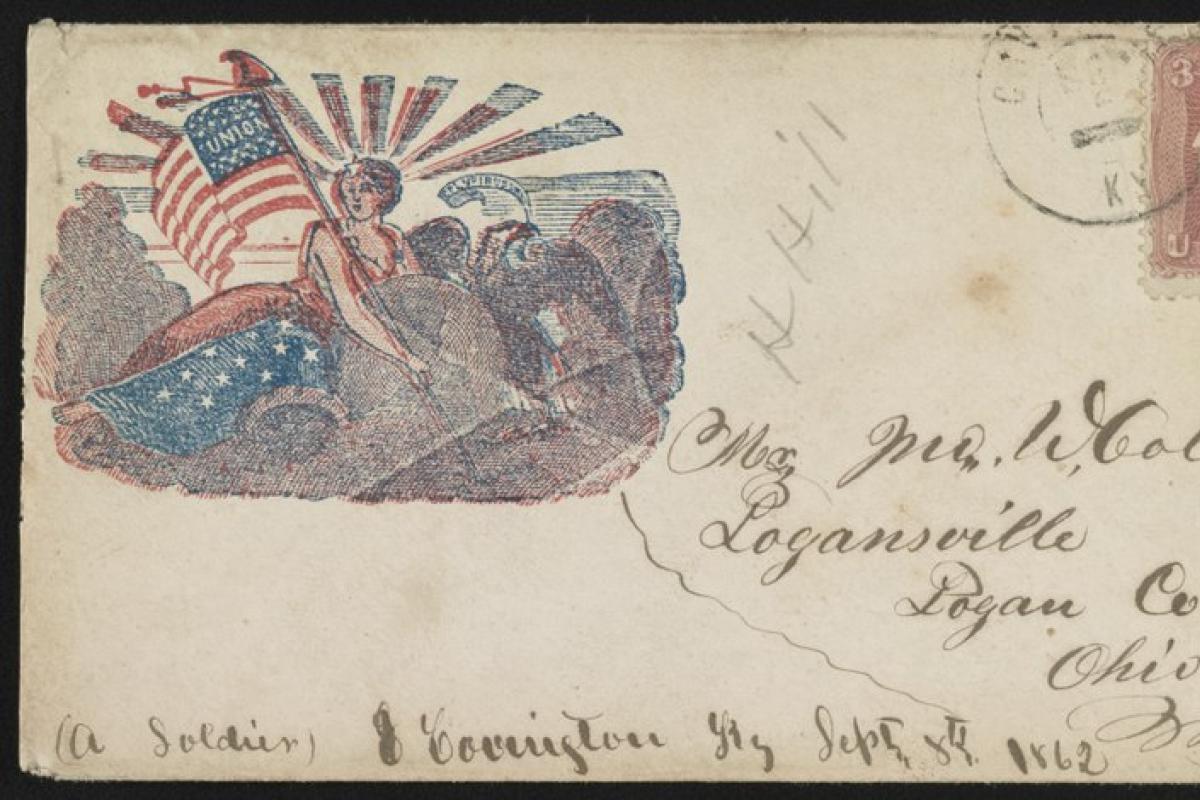 UNION
KY
3
U
H Hill
Mr Jno. W. Col
Logansville
Logan Co
Ohio
(A Soldier) Covington Ky Sept, 8th. 1862